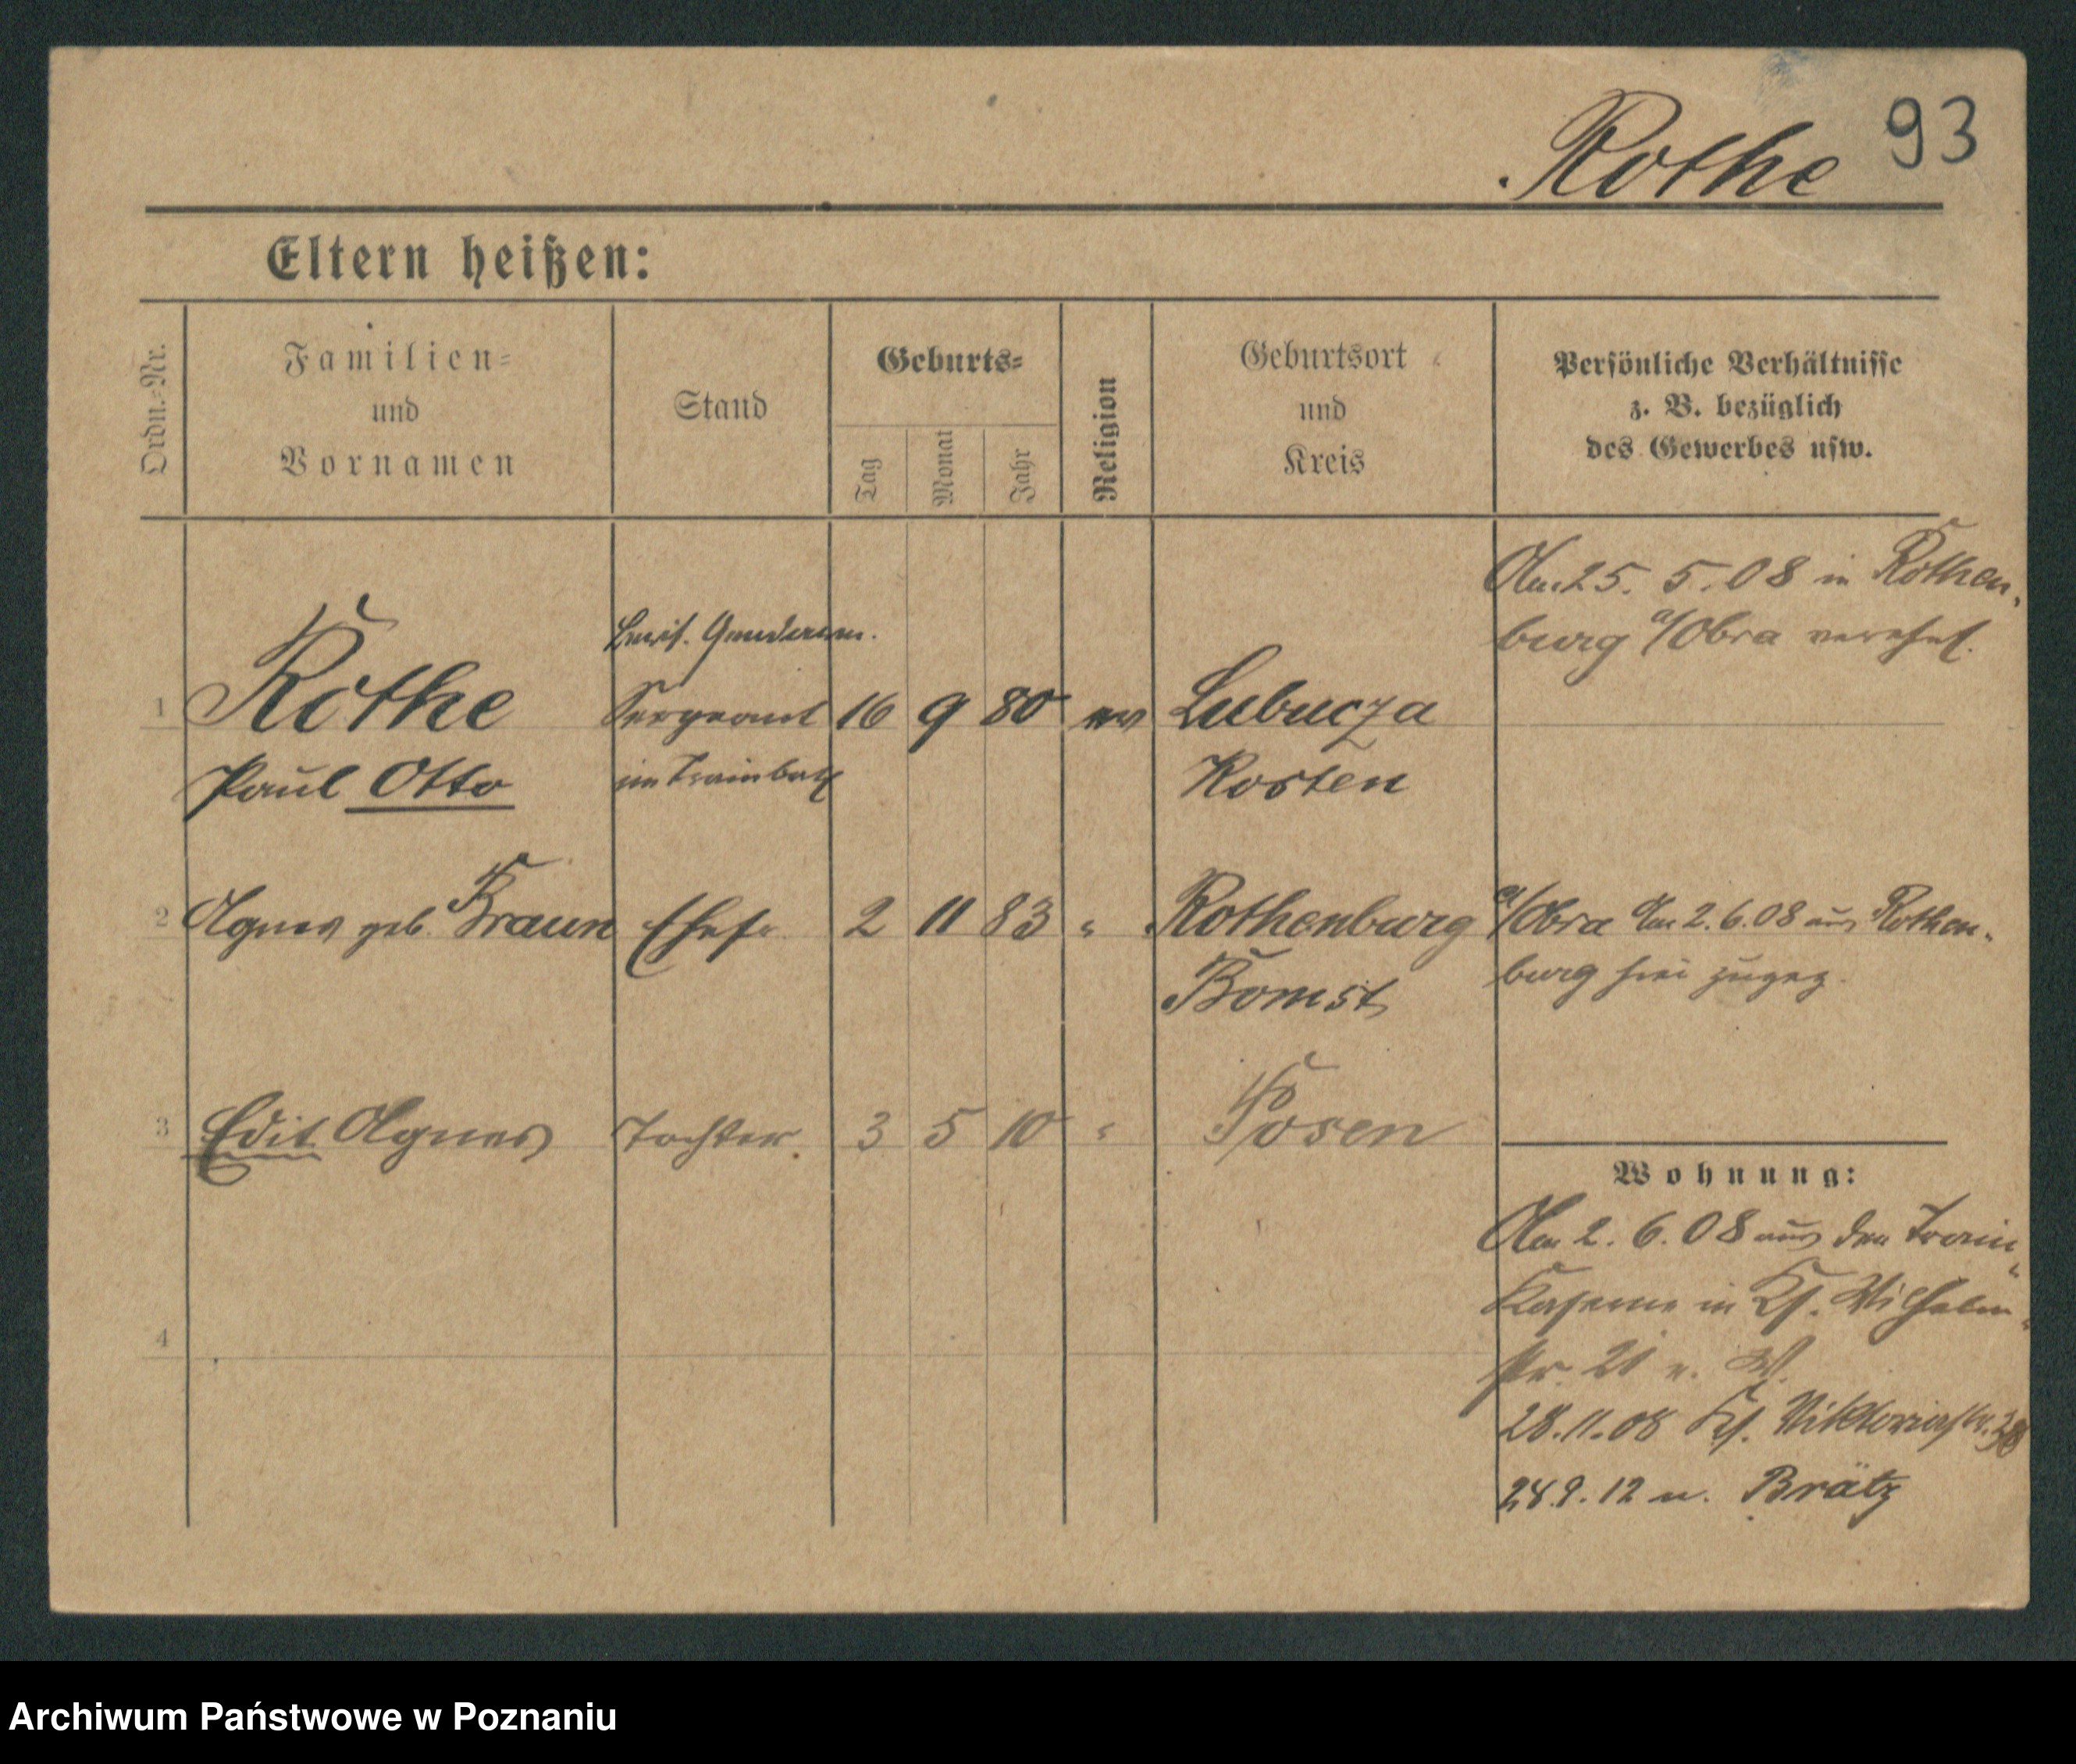 93
Rothe
Eltern heißen:
Ordn.-Nr.
Familien-
und
Vornamen
Stand
Geburts-
Tag
Monat
Jahr
Religion
Geburtsort
und
Kreis
Persönliche Verhältnisse
z. B. bezüglich
des Gewerbes usw.
Am 25. 5. 08 in Rothen-
burg a/Obra verehel.
1 Rothe Sergeant 16 9 80 ev Lubucza
Paul Otto im Trainbatl Kosten
2 Agnes geb. Braun Ehefr. 2 11 83 " Rothenburg a/Obra Am 2.6.08 aus Rothen-
Bomst burg hier zugez.
3 Edit Agnes Tochter. 3 5 10 " Posen
Wohnung:
Am 2. 6. 08 aus der Train-
Kaserne in Ks. Wilhelm-
str. 21 v. W.
4
28.11.08 Ks. Viktoriastr.
24.9.12 n. Brätz
Archiwum Państwowe w Poznaniu